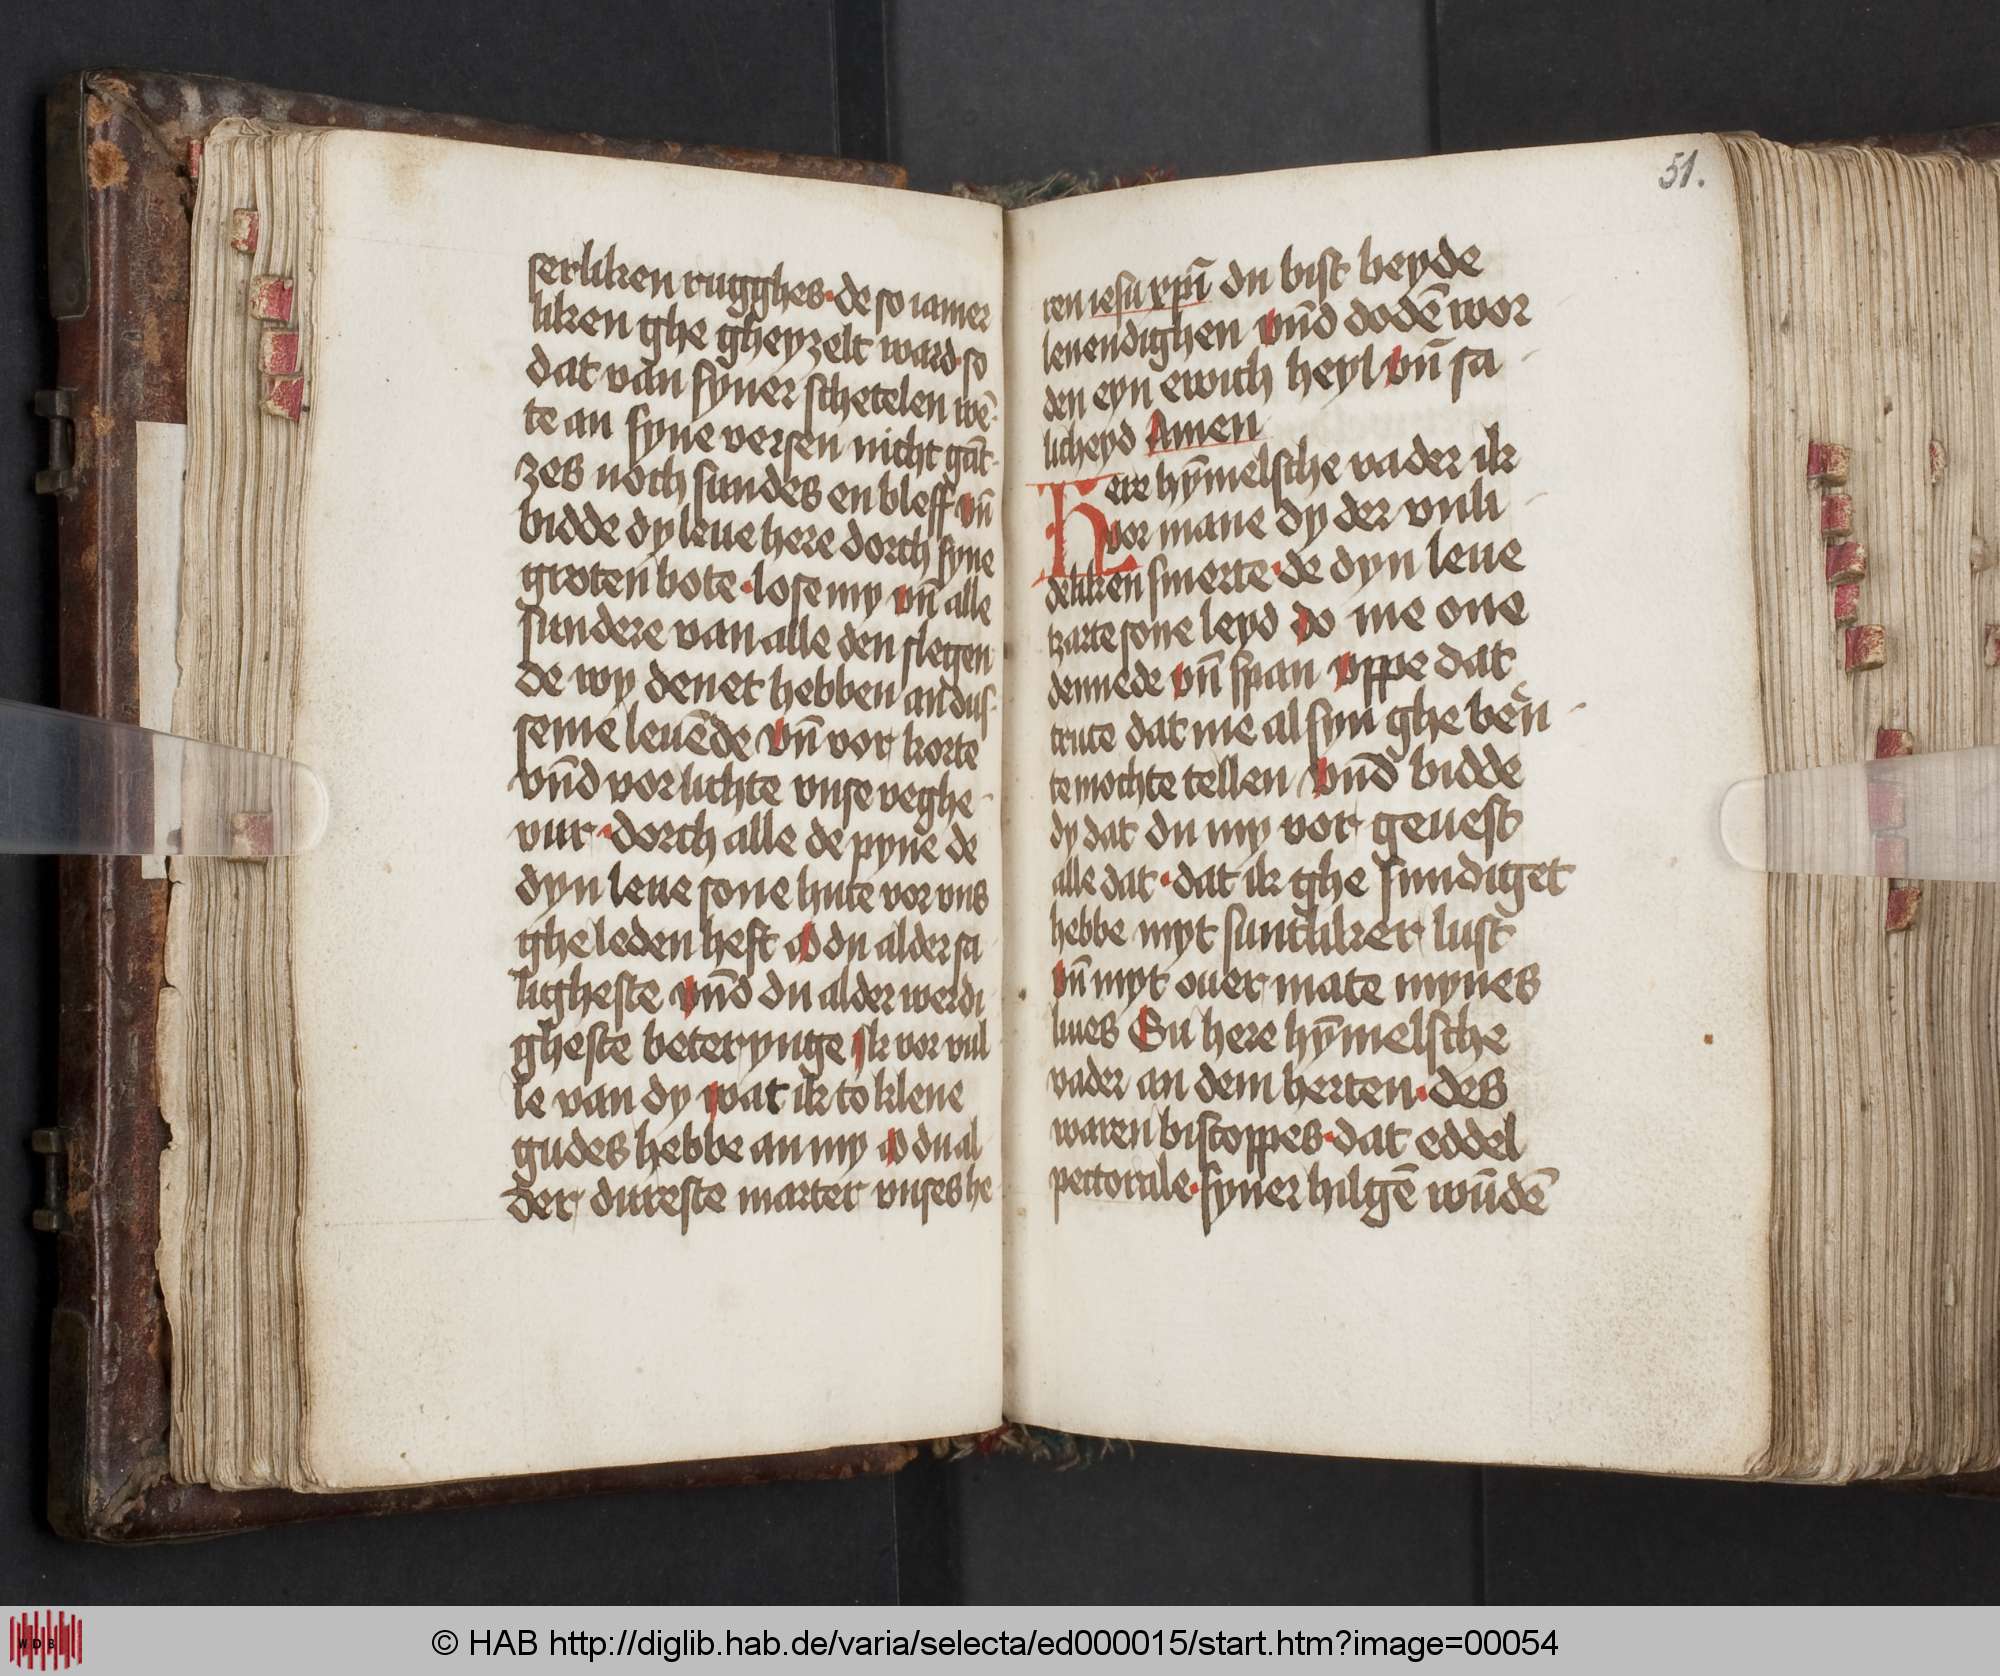 serliken rugghes · de so iamer
liken ghe gheyzelt ward so
dat van syner schetelen wē-
te an syne versen nicht gāt-
zes noch sundes en bleff vn̄
bidde dy leue here dorch syne
groten bote · lose my vn̄ alle
sundere van alle den slegen
de wy denet hebben an dus-
seme leuēde vn̄ vor korte
vn̄d vorlichte vnse veghe-
vur · dorch alle de pyne de
dyn leue sone hute vor vns
ghe leden heft O du alder sa
ligheste vn̄d du alder werdi
gheste beterynge Ik vor vul
le van dy wat ik to klene
gudes hebbe an my O du al
der dureste marter vnses he
51.
ren iesu xpū du bist beyde
leuendighen vn̄d dodē wor
den eyn ewich heyl vn̄ sa
licheyd Amen
Here hȳmelsche vader ik
vor mane dy der vuli
deliken smerte · de dyn leue
tzarte sone leyd do me one
dennede vn̄ span vppe dat
cruce dat me al syn ghe bēn
te mochte tellen vn̄d bidde
dy dat du my vor geuest
alle dat · dat ik ghe sundiget
hebbe myt suntliker lust
vn̄ myt ouer mate mynes
liues Su here hȳmelsche
vader an dem herten · des
waren biscoppes · dat eddel
pectorale · syner hilgē wūdē
WDB
© HAB http://diglib.hab.de/varia/selecta/ed000015/start.htm?image=00054